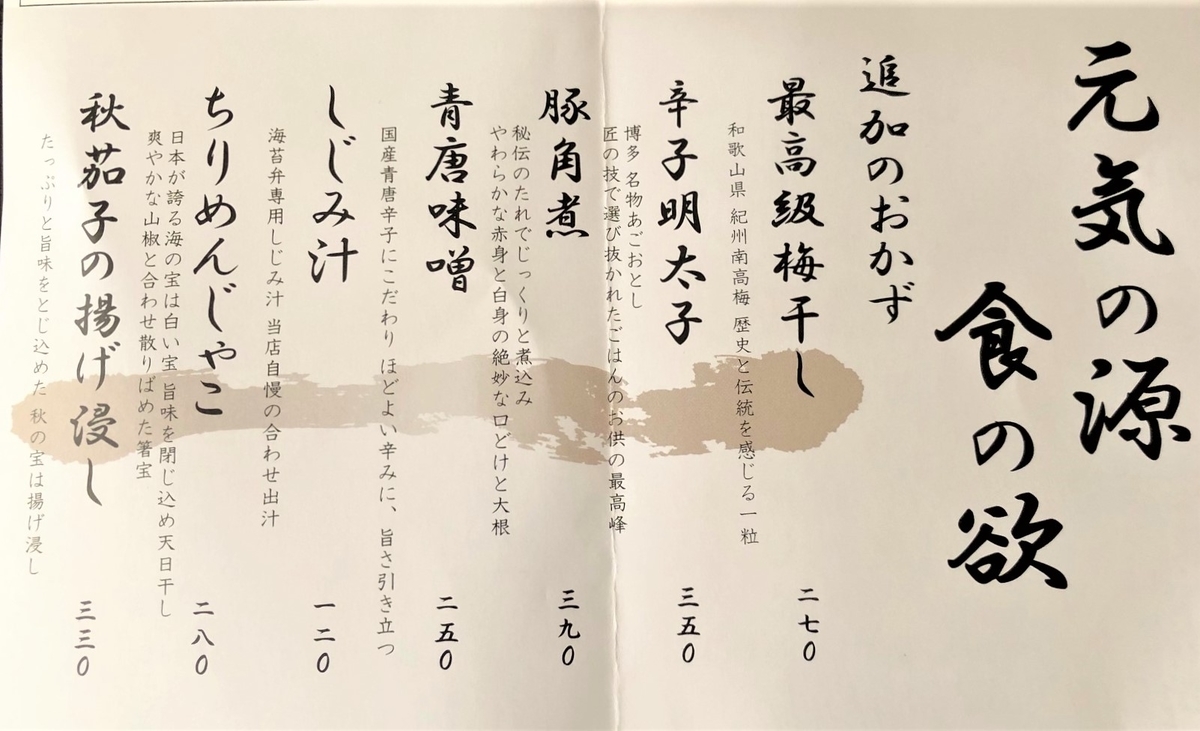 元気の源
食の欲
追加のおかず
最高級梅干し
二七0
和歌山県 紀州南高梅 歴史と伝統を感じる一粒
辛子明太子
三五0
博多 名物あごおとし
匠の技で選び抜かれたごはんのお供の最高峰
豚角煮
三九0
秘伝のたれでじっくりと煮込み
やわらかな赤身と白身の絶妙な口どけと大根
青唐味噌
二五0
国産青唐辛子にこだわり ほどよい辛みに、旨さ引き立つ
しじみ汁
一二0
海苔弁専用しじみ汁 当店自慢の合わせ出汁
ちりめんじゃこ
二八0
日本が誇る海の宝は白い宝 旨味を閉じ込め天日干し
爽やかな山椒と合わせ散りばめた箸宝
秋茄子の揚げ浸し
三三0
たっぷりと旨味をとじ込めた 秋の宝は揚げ浸し